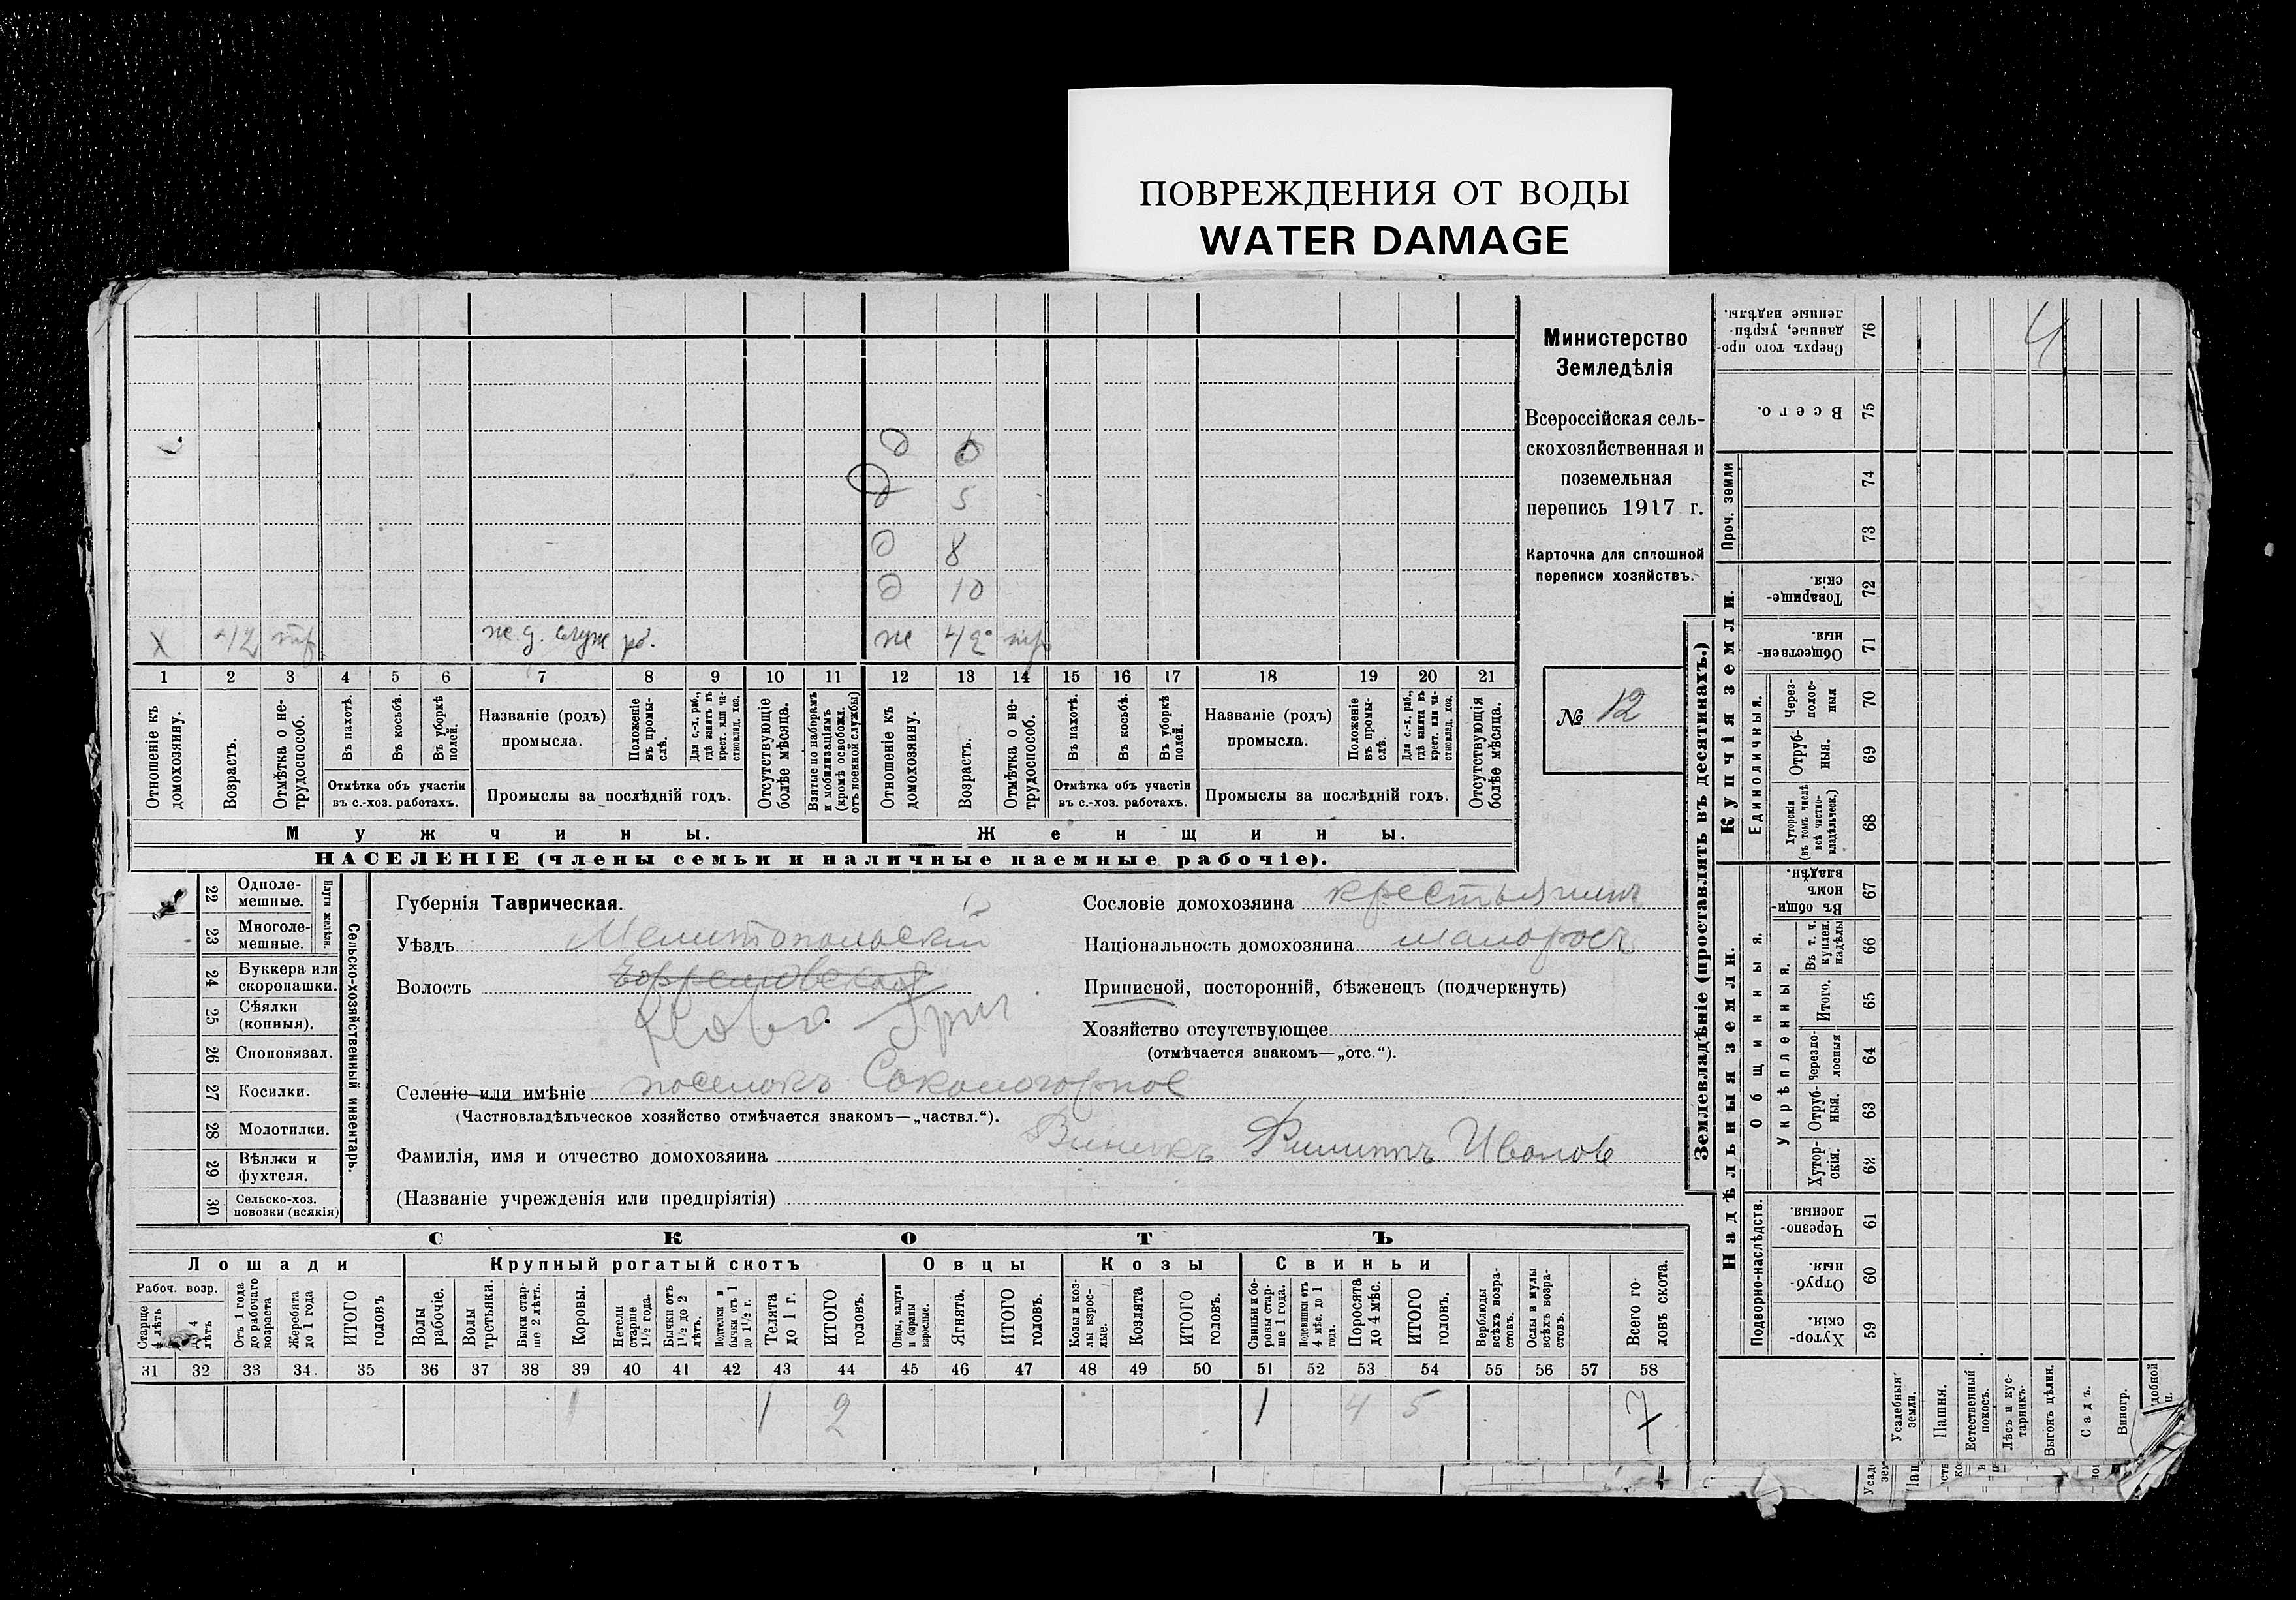 ПОВРЕЖДЕНИЯ ОТ ВОДЫ
WATER DAMAGE
Министерство
Земледѣлія
Всероссійская сель-
скохозяйственная и
поземельная
перепись 1917 г.
Карточка для сплошной
переписи хозяйствъ.
№ 12
д
д 5
д 8
д 10
х 42 ж. д. служ ж 42
1 2 3 4 5 6 7 8 9 10 11 12 13 14 15 16 17 18 19 20 21
Отношеніе къ домохозяину.
Возрастъ.
Отмѣтка о не-трудоспособ.
Въ пахотѣ.
Въ косьбѣ.
Въ уборкѣ полей.
Отмѣтка объ участіи
въ с.-хоз. работахъ.
Названіе (родъ)
промысла.
Положеніе въ промы-слѣ.
Для с.-х. раб., гдѣ занятъ въ крест. или ча-стновлад. хоз.
Промыслы за послѣдній годъ.
Отсутствующіе болѣе мѣсяца.
Взятые по наборамъ и мобилизаціямъ (кромѣ освобожд. отъ военной службы)
Отношеніе къ домохозяину.
Возрастъ.
Отмѣтка о не-трудоспособ.
Въ пахотѣ.
Въ косьбѣ.
Въ уборкѣ полей.
Отмѣтка объ участіи
въ с.-хоз. работахъ.
Названіе (родъ)
промысла.
Положеніе въ промы-слѣ.
Для с.-х. раб., гдѣ занята въ крест. или ча-стновлад. хоз.
Промыслы за послѣдній годъ.
Отсутствующія болѣе мѣсяца.
Мужчины.
Женщины.
НАСЕЛЕНІЕ (члены семьи и наличные наемные рабочіе).
22 Одноле-
мешные.
23 Многоле-
мешные.
Плуги желѣзн.
24 Буккера или
скоропашки.
25 Сѣялки
(конныя).
26 Сноповязал.
27 Косилки.
28 Молотилки.
29 Вѣялки и
фухтеля.
30 Сельско-хоз.
повозки (всякія)
Сельско-хозяйственный инвентарь.
Губернія Таврическая.
Уѣздъ Мелитопольскій
Волость Ефремовская
Ново Григ
Селеніе или имѣніе поселокъ Сокологорное
(Частновладѣльческое хозяйство отмѣчается знакомъ—„частвл.“).
Фамилія, имя и отчество домохозяина Винникъ Филиппъ Иванов
(Названіе учрежденія или предпріятія)
Сословіе домохозяина крестьянинъ
Національность домохозяина малоросъ
Приписной, посторонній, бѣженецъ (подчеркнуть)
Хозяйство отсутствующее
(отмѣчается знакомъ—„отс.“).
СКОТЪ
Лошади
Рабоч. возр.
Старше 4 лѣтъ
до 4 лѣтъ
Отъ 1 года до рабочаго возраста
Жеребята до 1 года
ИТОГО головъ
Крупный рогатый скотъ
Волы рабочіе.
Волы третьяки.
Быки стар-ше 2 лѣтъ.
Коровы.
Нетели старше 1½ года.
Бычки отъ 1½ до 2 лѣтъ.
Подтелки и бычки отъ 1 до 1½ г.
Телята до 1 г.
ИТОГО головъ.
Овцы
Овцы, валухи и бараны взрослые.
Ягнята.
ИТОГО головъ.
Козы
Козы и коз-лы взрос-лые.
Козлята
ИТОГО головъ.
Свиньи
Свиньи и бо-ровы стар-ше 1 года.
Подсвинки отъ 4 мѣс. до 1 года.
Поросята до 4 мѣс.
ИТОГО головъ.
Верблюды всѣхъ возра-стовъ.
Ослы и мулы всѣхъ возра-стовъ.
Всего го-ловъ скота.
31 32 33 34. 35 36 37 38 39 40 41 42 43 44 45 46 47 48 49 50 51 52 53 54 55 56 57 58
1 1 2 1 4 5 7
Землевладѣніе (проставлять въ десятинахъ.)
Купчія земли.
Надѣльныя земли.
Сверхъ того про-
данные, укрѣп-
ленные надѣлы.
76
4
Всего.
75
Проч. земли
74
73
Товарище-
скія.
72
Обществен-
ныя.
71
Единоличныя.
Через-полос-ныя 70
Отруб-ныя. 69
Хуторскія (въ томъ числѣ всѣ частно-владѣльческ.) 68
Общинныя.
Въ общин-
номъ
владѣн.
67
Укрѣпленныя.
Въ т. ч. куплен. надѣлы 66
Итого. 65
Черезпо-лосныя 64
Отруб-ныя. 63
Хутор-скія. 62
Подворно-наслѣдств.
Черезпо-
лосныя.
61
Отруб-
ныя.
60
Хутор-
скія.
59
Усадебныя земли.
Пашня.
Естественный покосъ.
Лѣсъ и кус-тарникъ.
Выгонъ цѣлин.
Садъ.
Виногр.